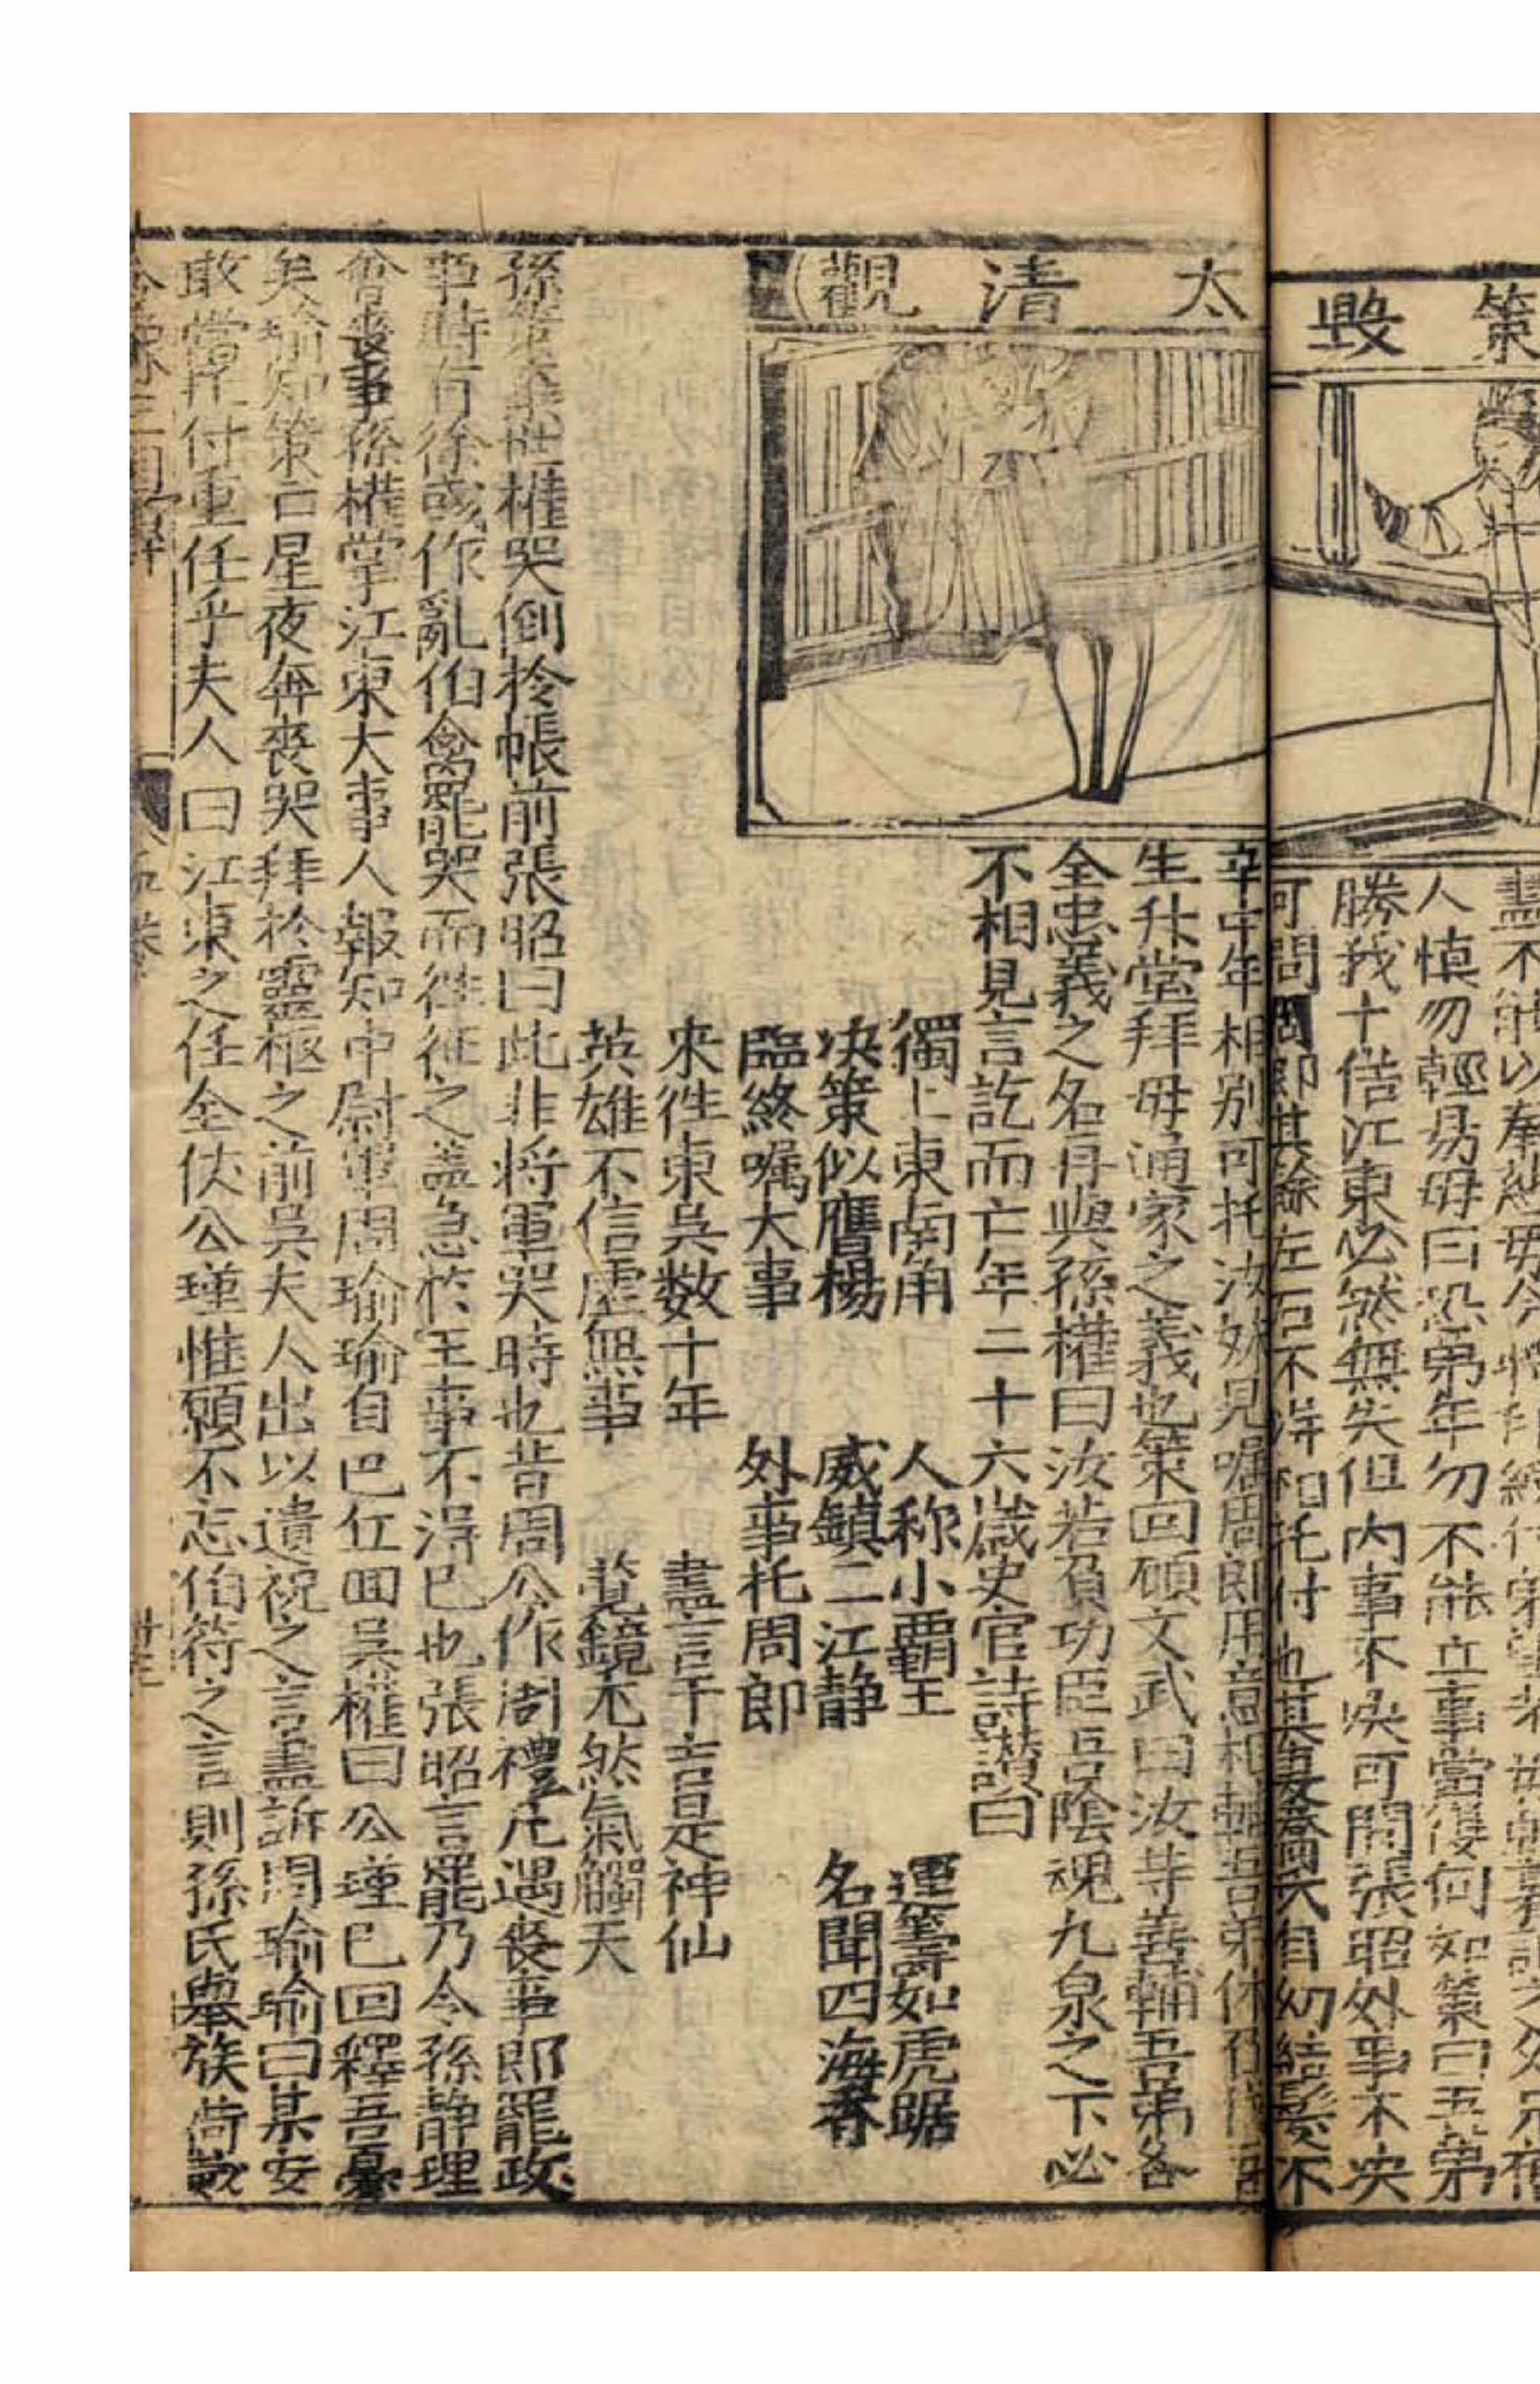 策毀
盡不
人慎勿輕易毋曰恐弟年勿不能立事當復何如策曰吾弟
勝我十倍江東必然無失但内事不决可問張昭外事不决
可問周郎其餘左右不洋和托付也其妻喬氏自幼結髮不
太清觀
幸中年相別可托汝妹見嘱周郎用意相輔吾弟休
生升堂拜毋通家之義也策回顧文武曰汝等善輔吾弟各
全忠義之名再與孫權曰汝若負功臣吾陰魂九泉之下必
不相見言訖而亡年二十六歲史官詩讃曰
獨上東南角 人称小覇王 運籌如虎踞
决策似鷹楊 威鎮二江静 名聞四海香
臨終嘱大事 外事托周郎
来徃東吳数十年 盡言于吉是神仙
英雄不信虛無事 覧鏡尤然氣觸天
孫策旣世權哭倒於帳前張昭曰此非将軍哭時也昔周公作周禮凢遇喪事即罷政
事時有徐戎作亂伯禽罷哭而徃征之盖急於王事不得已也張昭言罷乃令孫静理
會喪事孫權掌江東大事人報知中尉軍周瑜瑜自巴丘回吳權曰公瑾已回釋吾憂
矣瑜知策亡星夜奔喪哭拜於靈柩之前吳夫人出以遺祝之言盡訴周瑜瑜曰某安
敢當托付重任乎夫人曰江東之任全伏公瑾惟願不忘伯符之言則孫氏舉族荷